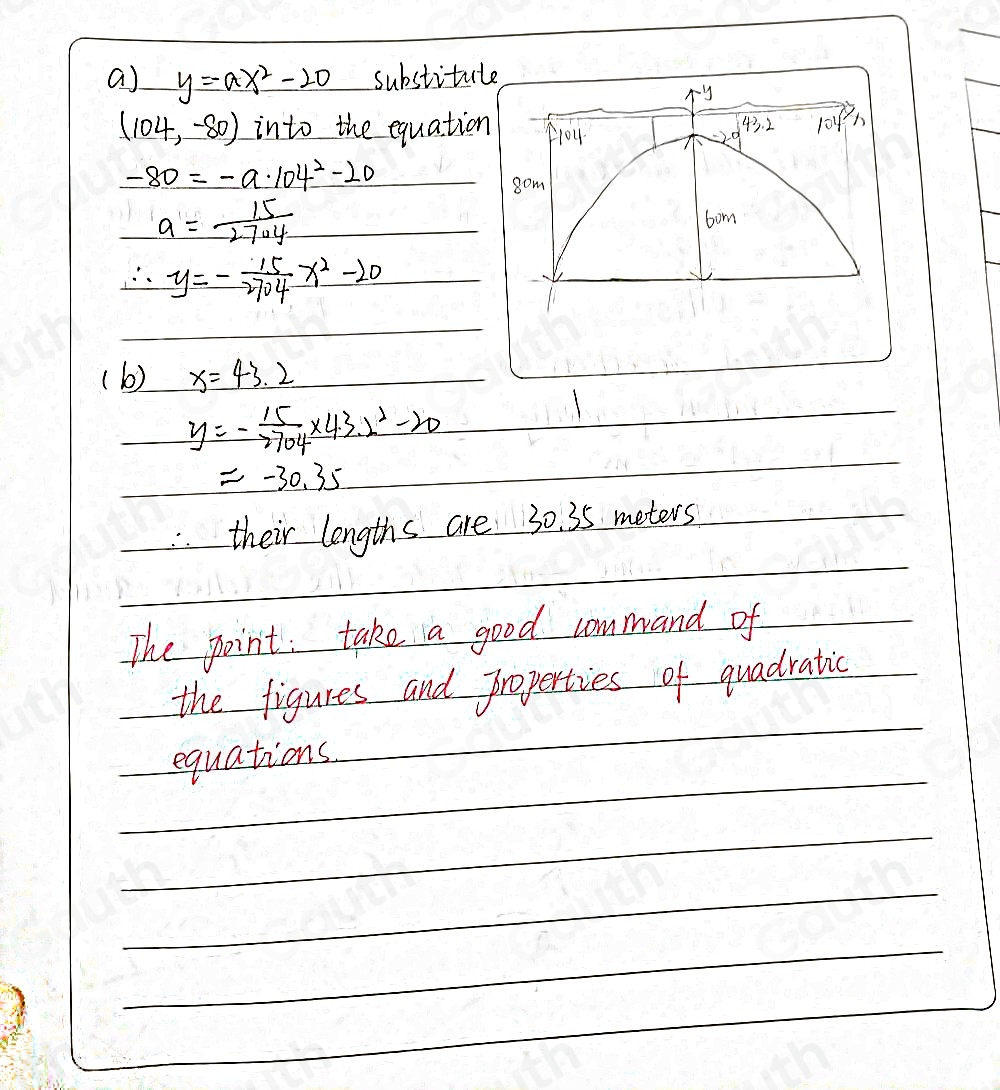 a) y = ax² - 20 substitute
(104, -80) into the equation
-80 = -a·104² - 20
a = 15/2704
∴ y = - 15/2704 x² - 20
y
104
-20
43.2
104
80m
60m
(b) x = 43.2
y = - 15/2704 × 43.2² - 20
≈ -30.35
∴ their lengths are 30.35 meters
The point: take a good command of
the figures and properties of quadratic
equations.